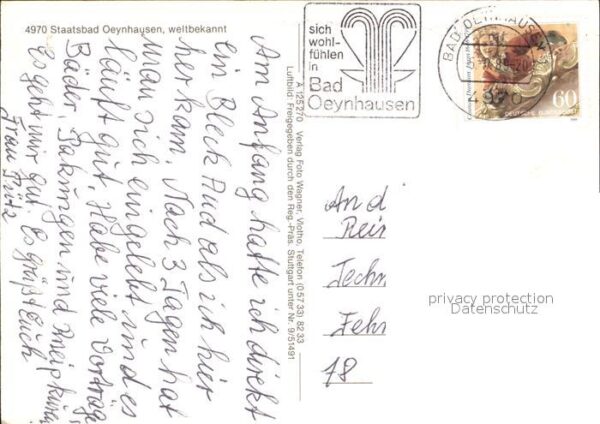 4970 Staatsbad Oeynhausen, weltbekannt
Am Anfang hatte ich direkt
ein Black Aud als ich hier
her kam. Nach 3 Tagen hat
man sich eingelebt und es
läuft gut. Habe viele Vorträge
Bäder, Pakungen und
Es geht mir gut. Es grüßt Euch
Frau
A 125270 Verlag Foto Wagner, Vlotho, Telefon (05733) 8233
Luftbild: Freigegeben durch den Reg.-Präs. Stuttgart unter Nr. 9/51491
sich
wohl-
fühlen
in
Bad
Oeynhausen
BAD OEYNHAUSEN
4970
60
DEUTSCHE BUNDESPOST
And
Rei
Techn
Fehr
18
privacy protection
Datenschutz